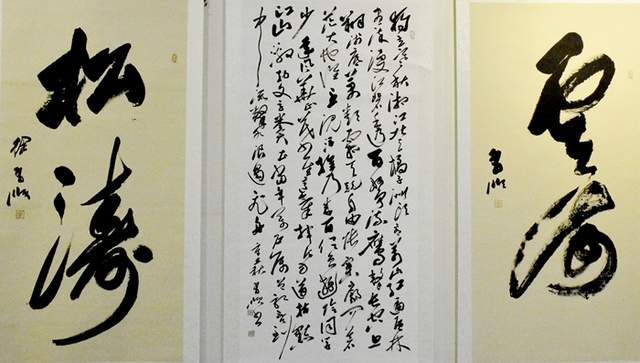 雲海
独立寒秋湘江北去橘子洲头看万山红遍层林
尽染漫江碧透百舸争流鹰击长空鱼
翔浅底万类霜天竞自由怅寥廓问苍
茫大地谁主沉浮携来百侣曾游恰同学
少年风华正茂书生意气挥斥方遒指点
江山激扬文字粪土当年万户侯曾记否到
中流击水浪遏飞舟
松涛